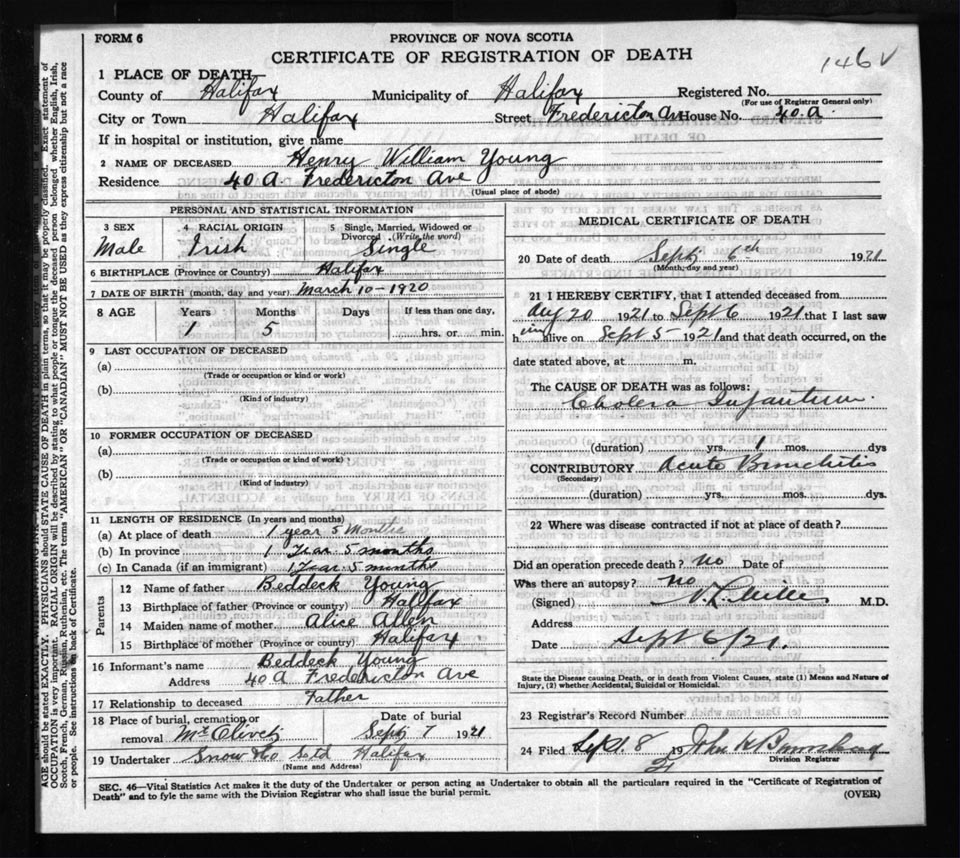 FORM 6
PROVINCE OF NOVA SCOTIA
CERTIFICATE OF REGISTRATION OF DEATH
146 V
1 PLACE OF DEATH—
County of Halifax Municipality of Halifax Registered No.
(For use of Registrar General only)
City or Town Halifax Street Fredericton Av House No. 40.A.
If in hospital or institution, give name
2 NAME OF DECEASED Henry William Young
Residence 40 A. Fredericton Ave
(Usual place of abode)
PERSONAL AND STATISTICAL INFORMATION
3 SEX Male
4 RACIAL ORIGIN Irish
5 Single, Married, Widowed or Divorced (Write the word) Single
6 BIRTHPLACE (Province or Country) Halifax
7 DATE OF BIRTH (month, day and year) March 10-1920
8 AGE Years Months Days If less than one day,
1 5 hrs. or min.
9 LAST OCCUPATION OF DECEASED
(a)
(Trade or occupation or kind or work)
(b)
(Kind of industry)
10 FORMER OCCUPATION OF DECEASED
(a)
(Trade or occupation or kind of work)
(b)
(Kind of industry)
11 LENGTH OF RESIDENCE (In years and months)
(a) At place of death 1 year 5 Months
(b) In province 1 Year 5 months
(c) In Canada (if an immigrant) 1 Year 5 months
Parents
12 Name of father Beddeck Young
13 Birthplace of father (Province or country) Halifax
14 Maiden name of mother Alice Allen
15 Birthplace of mother (Province or country) Halifax
16 Informant's name Beddeck Young
Address 40 A Fredericton Ave
17 Relationship to deceased Father
18 Place of burial, cremation or removal Mt Olivet
Date of burial Sept 7 1921
19 Undertaker Snow & Co Ltd Halifax
(Name and Address)
MEDICAL CERTIFICATE OF DEATH
20 Date of death Sept 6th 1921
(Month, day and year)
21 I HEREBY CERTIFY, that I attended deceased from
Aug 20 1921 to Sept 6 1921 that I last saw
him alive on Sept 5 1921 and that death occurred, on the
date stated above, at m.
The CAUSE OF DEATH was as follows:
Cholera Infantum.
(duration) yrs. 1 mos. dys
CONTRIBUTORY Acute Bronchitis
(Secondary)
(duration) yrs. mos. dys.
22 Where was disease contracted if not at place of death?
Did an operation precede death? no Date of
Was there an autopsy? no
(Signed) M.D.
Address
Date Sept 6/21.
State the Disease causing Death, or in death from Violent Causes, state (1) Means and Nature of
Injury, (2) whether Accidental, Suicidal or Homicidal.
23 Registrar's Record Number
24 Filed Sept. 8 19 21 John
Division Registrar
SEC. 46—Vital Statistics Act makes it the duty of the Undertaker or person acting as Undertaker to obtain all the particulars required in the "Certificate of Registration of
Death" and to fyle the same with the Division Registrar who shall issue the burial permit.
(OVER)
AGE should be stated EXACTLY. PHYSICIANS should STATE CAUSE OF DEATH in plain terms, so that it may be properly classified. Exact statement of
OCCUPATION is very important. RACIAL ORIGIN will be described by stating to what people or tongue the deceased person belonged whether English, Irish,
Scotch, French, German, Russian, Ruthenian, etc. The terms "AMERICAN" OR "CANADIAN" MUST NOT BE USED as they express citizenship but not a race
or people. See instructions on back of Certificate.